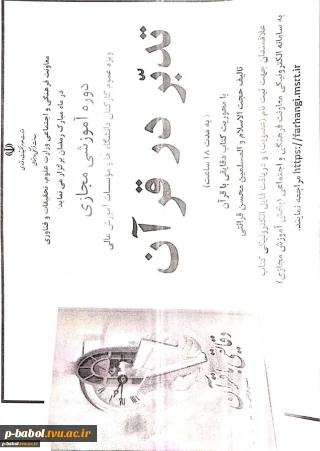 معاونت فرهنگی و اجتماعی وزارت علوم، تحقیقات و فناوری
در ماه مبارک رمضان برگزار می نماید
دوره آموزشی مجازی
ویژه عموم کارکنان دانشگاه ها و مؤسسات آموزش عالی
تدبّر در قرآن
با محوریت کتاب دقایقی با قرآن
( به مدت ۱۸ ساعت)
تالیف حجت الاسلام و المسلمین محسن قرائتی
علاقمندان جهت ثبت نام (عضویت) و دریافت فایل الکترونیکی کتاب
به سامانه الکترونیکی معاونت فرهنگی و اجتماعی (بخش آموزش مجازی)
https://farhangi.msrt.ir مراجعه نمایند.
دقایقی با قرآن
p-babol.tvu.ac.ir
p-babol.tvu.ac.ir